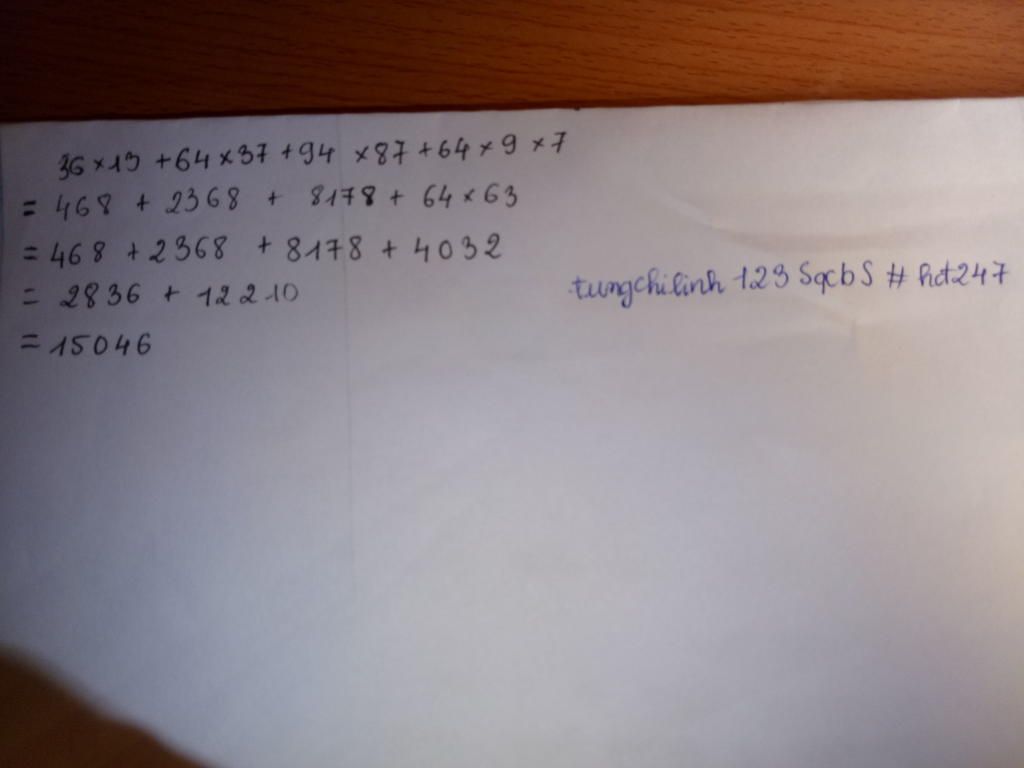 36 × 13 + 64 × 37 + 94 × 87 + 64 × 9 × 7
= 468 + 2368 + 8178 + 64 × 63
= 468 + 2368 + 8178 + 4032
= 2836 + 12210
= 15046
tungchilinh 123 SqcbS # hdt247